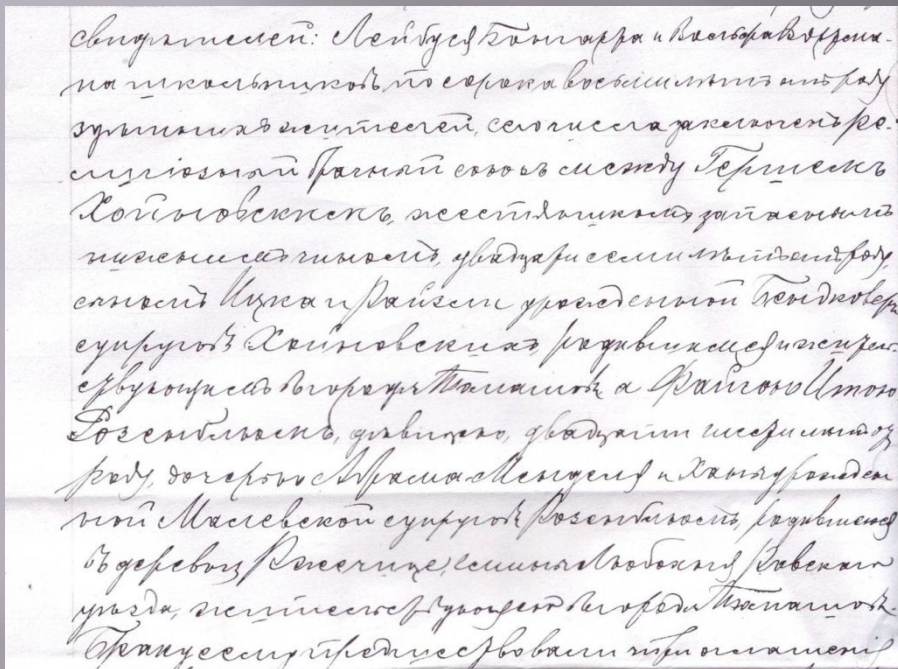 свидѣтелей: Лейбуся Бонгарра и Вольфа Войдма-
на школьниковъ по сорока восьми лѣтъ отъ роду
здѣшнихъ жителей, сего числа заключенъ ре-
лигіозный брачный союзъ между Гершемъ
Хойновскимъ, жестянщикомъ запаснымъ
нижнимъ чиномъ, двадцати семи лѣтъ отъ роду,
сыномъ Ицка и Райзли урожденной
супруговъ Хойновскихъ, родившимся и житель-
ствующимъ въ городѣ Томашовѣ а Файгою Итою
Розенблюмъ, дѣвицею, двадцати шести лѣтъ отъ
роду, дочерью Абрама Менделя и Ханы урожден-
ной Малевской супруговъ Розенблюмъ, родившеюся
въ деревнѣ Ржечице, гмины Любохня Равскаго
уѣзда, жительствующею въ городѣ Томашовѣ.
Браку сему предшествовали три оглашенія